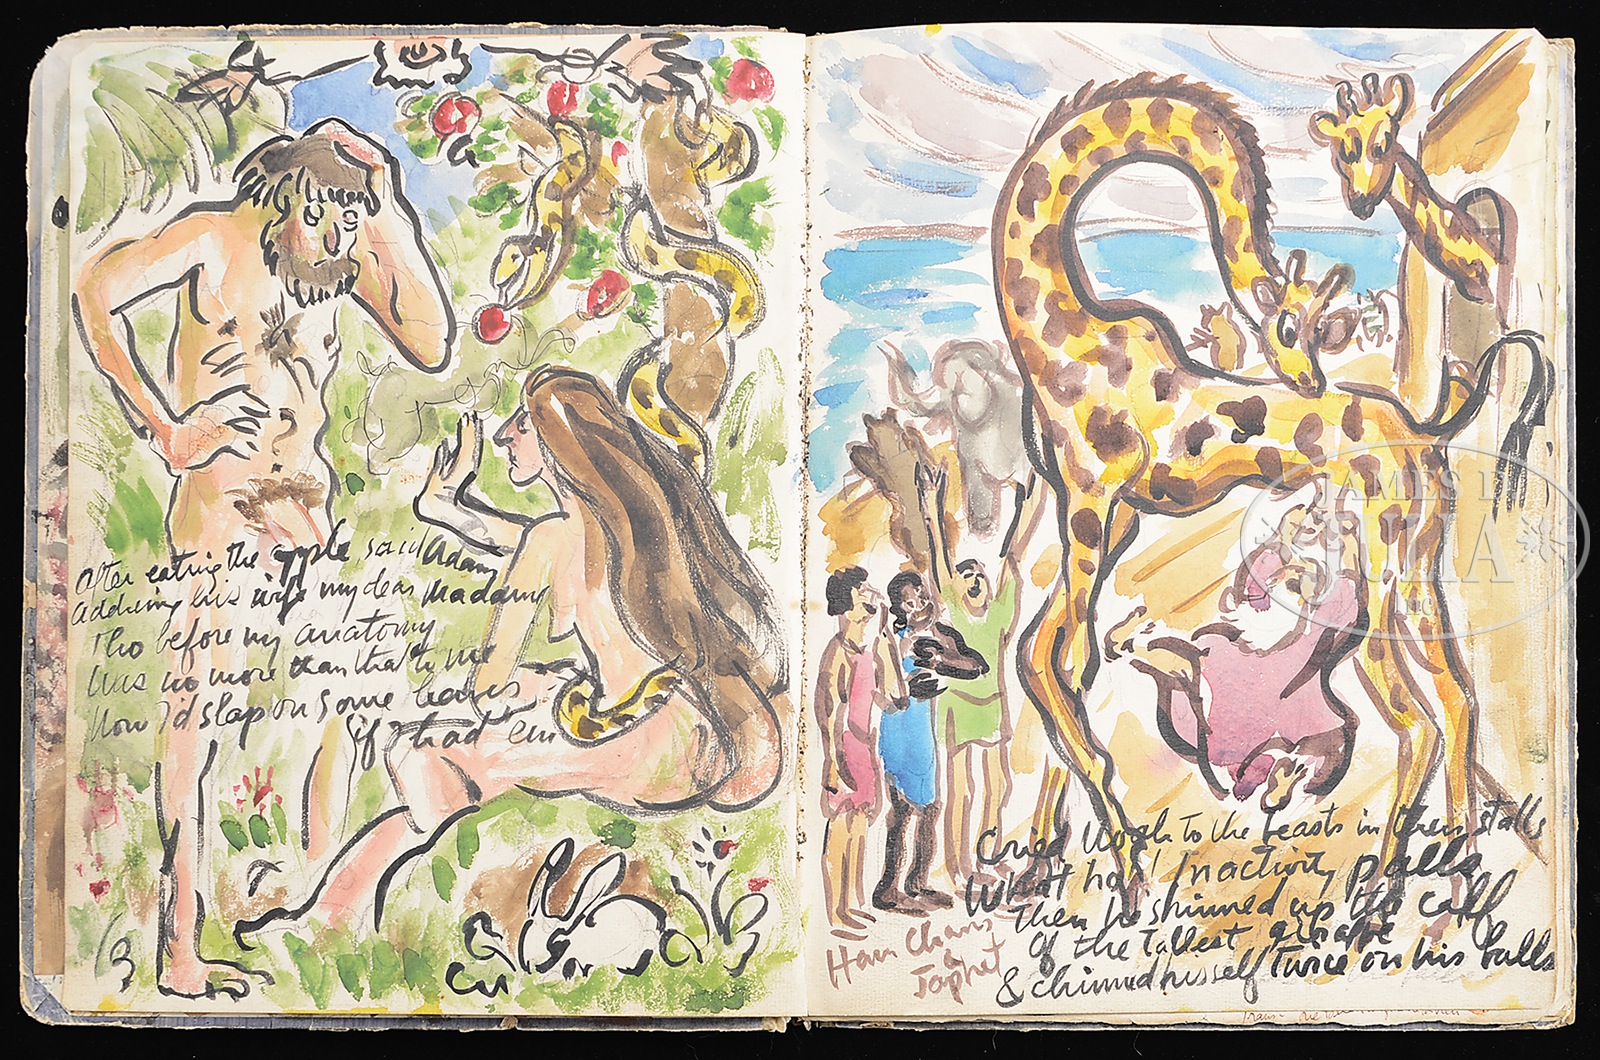 After eating the apple, said Adam
Addressing his wife my dear Madam
Tho before my anatomy
Was no more than that to me
Now I'd slap on some leaves
if I had 'em
Cried Noah to the beasts in their stalls
What ho! Inactivity palls
Then he shinned up the calf
Of the tallest giraffe
& chinned hisself twice on his balls
Ham Chans
&
Japhet
JAMES D.
JULIA
Inc